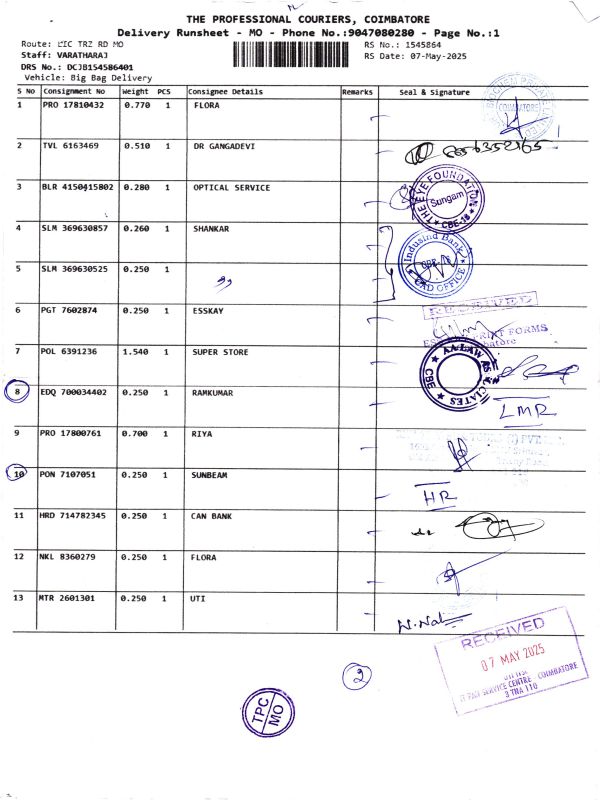 THE PROFESSIONAL COURIERS, COIMBATORE
Delivery Runsheet - MO - Phone No.:9047080280 - Page No.:1
Route: LIC TRZ RD MO
RS No.: 1545864
Staff: VARATHARAJ
RS Date: 07-May-2025
DRS No.: DCJB154586401
Vehicle: Big Bag Delivery
S No Consignment No Weight PCS Consignee Details Remarks Seal & Signature
1 PRO 17810432 0.770 1 FLORA
COIMBATORE
2 TVL 6163469 0.510 1 DR GANGADEVI
3 BLR 4150415802 0.280 1 OPTICAL SERVICE
THE EYE FOUNDATION
Sungam
CBE-18
4 SLM 369630857 0.260 1 SHANKAR
Indusind Bank
CBE-18
CAD OFFICE
5 SLM 369630525 0.250 1
6 PGT 7602874 0.250 1 ESSKAY
RECEIVED
PRINT FORMS
7 POL 6391236 1.540 1 SUPER STORE
CBE
8 EDQ 700034402 0.250 1 RAMKUMAR
LMR
9 PRO 17800761 0.700 1 RIYA
10 PON 7107051 0.250 1 SUNBEAM
HR
11 HRD 714782345 0.250 1 CAN BANK
12 NKL 8360279 0.250 1 FLORA
13 MTR 2601301 0.250 1 UTI
RECEIVED
07 MAY 2025
PAN SERVICE CENTRE COIMBATORE
2
TPC
MO